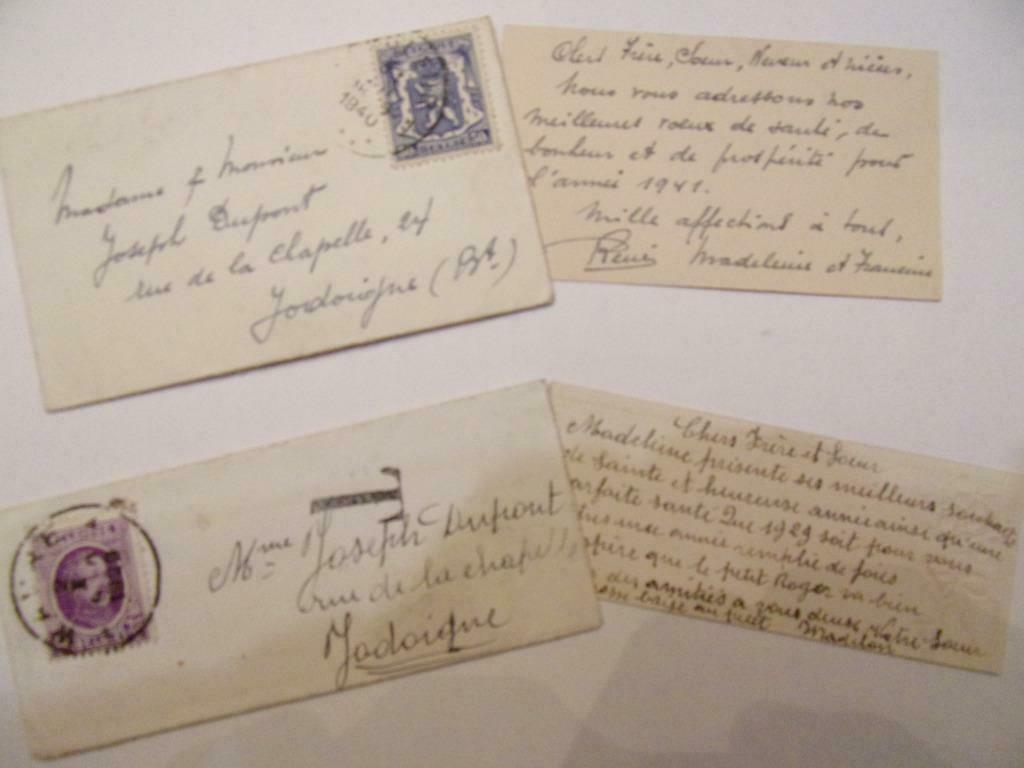 1940
BELGIE
Madame & Monsieur
Joseph Dupont
rue de la Chapelle, 24
Jodoigne (Bt.)
Chers Frère, Soeur, Neveux et nièces,
Nous vous adressons nos
meilleurs voeux de santé, de
bonheur et de prospérité pour
l'année 1941.
Mille affections à tous,
Madeleine et Francine
T
Joseph Dupont
rue de la chapelle
Jodoigne
Chers Frère et Soeur
Madeleine présente ses meilleurs souhaits
de Sainte et heureuse année ainsi qu'une
parfaite santé Que 1929 soit pour vous
une année remplie de joies
que le petit Roger va bien
des amitiés a vous deux Votre Soeur
baise au petit Madelon